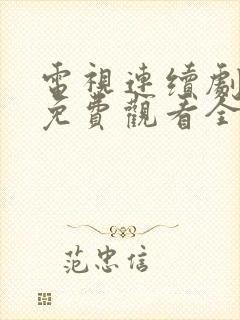 電視連續劇
免費觀看全
范忠信